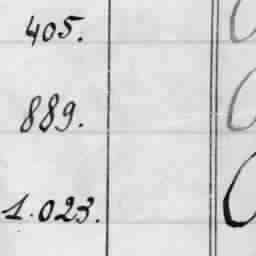 405.
889.
1.023.